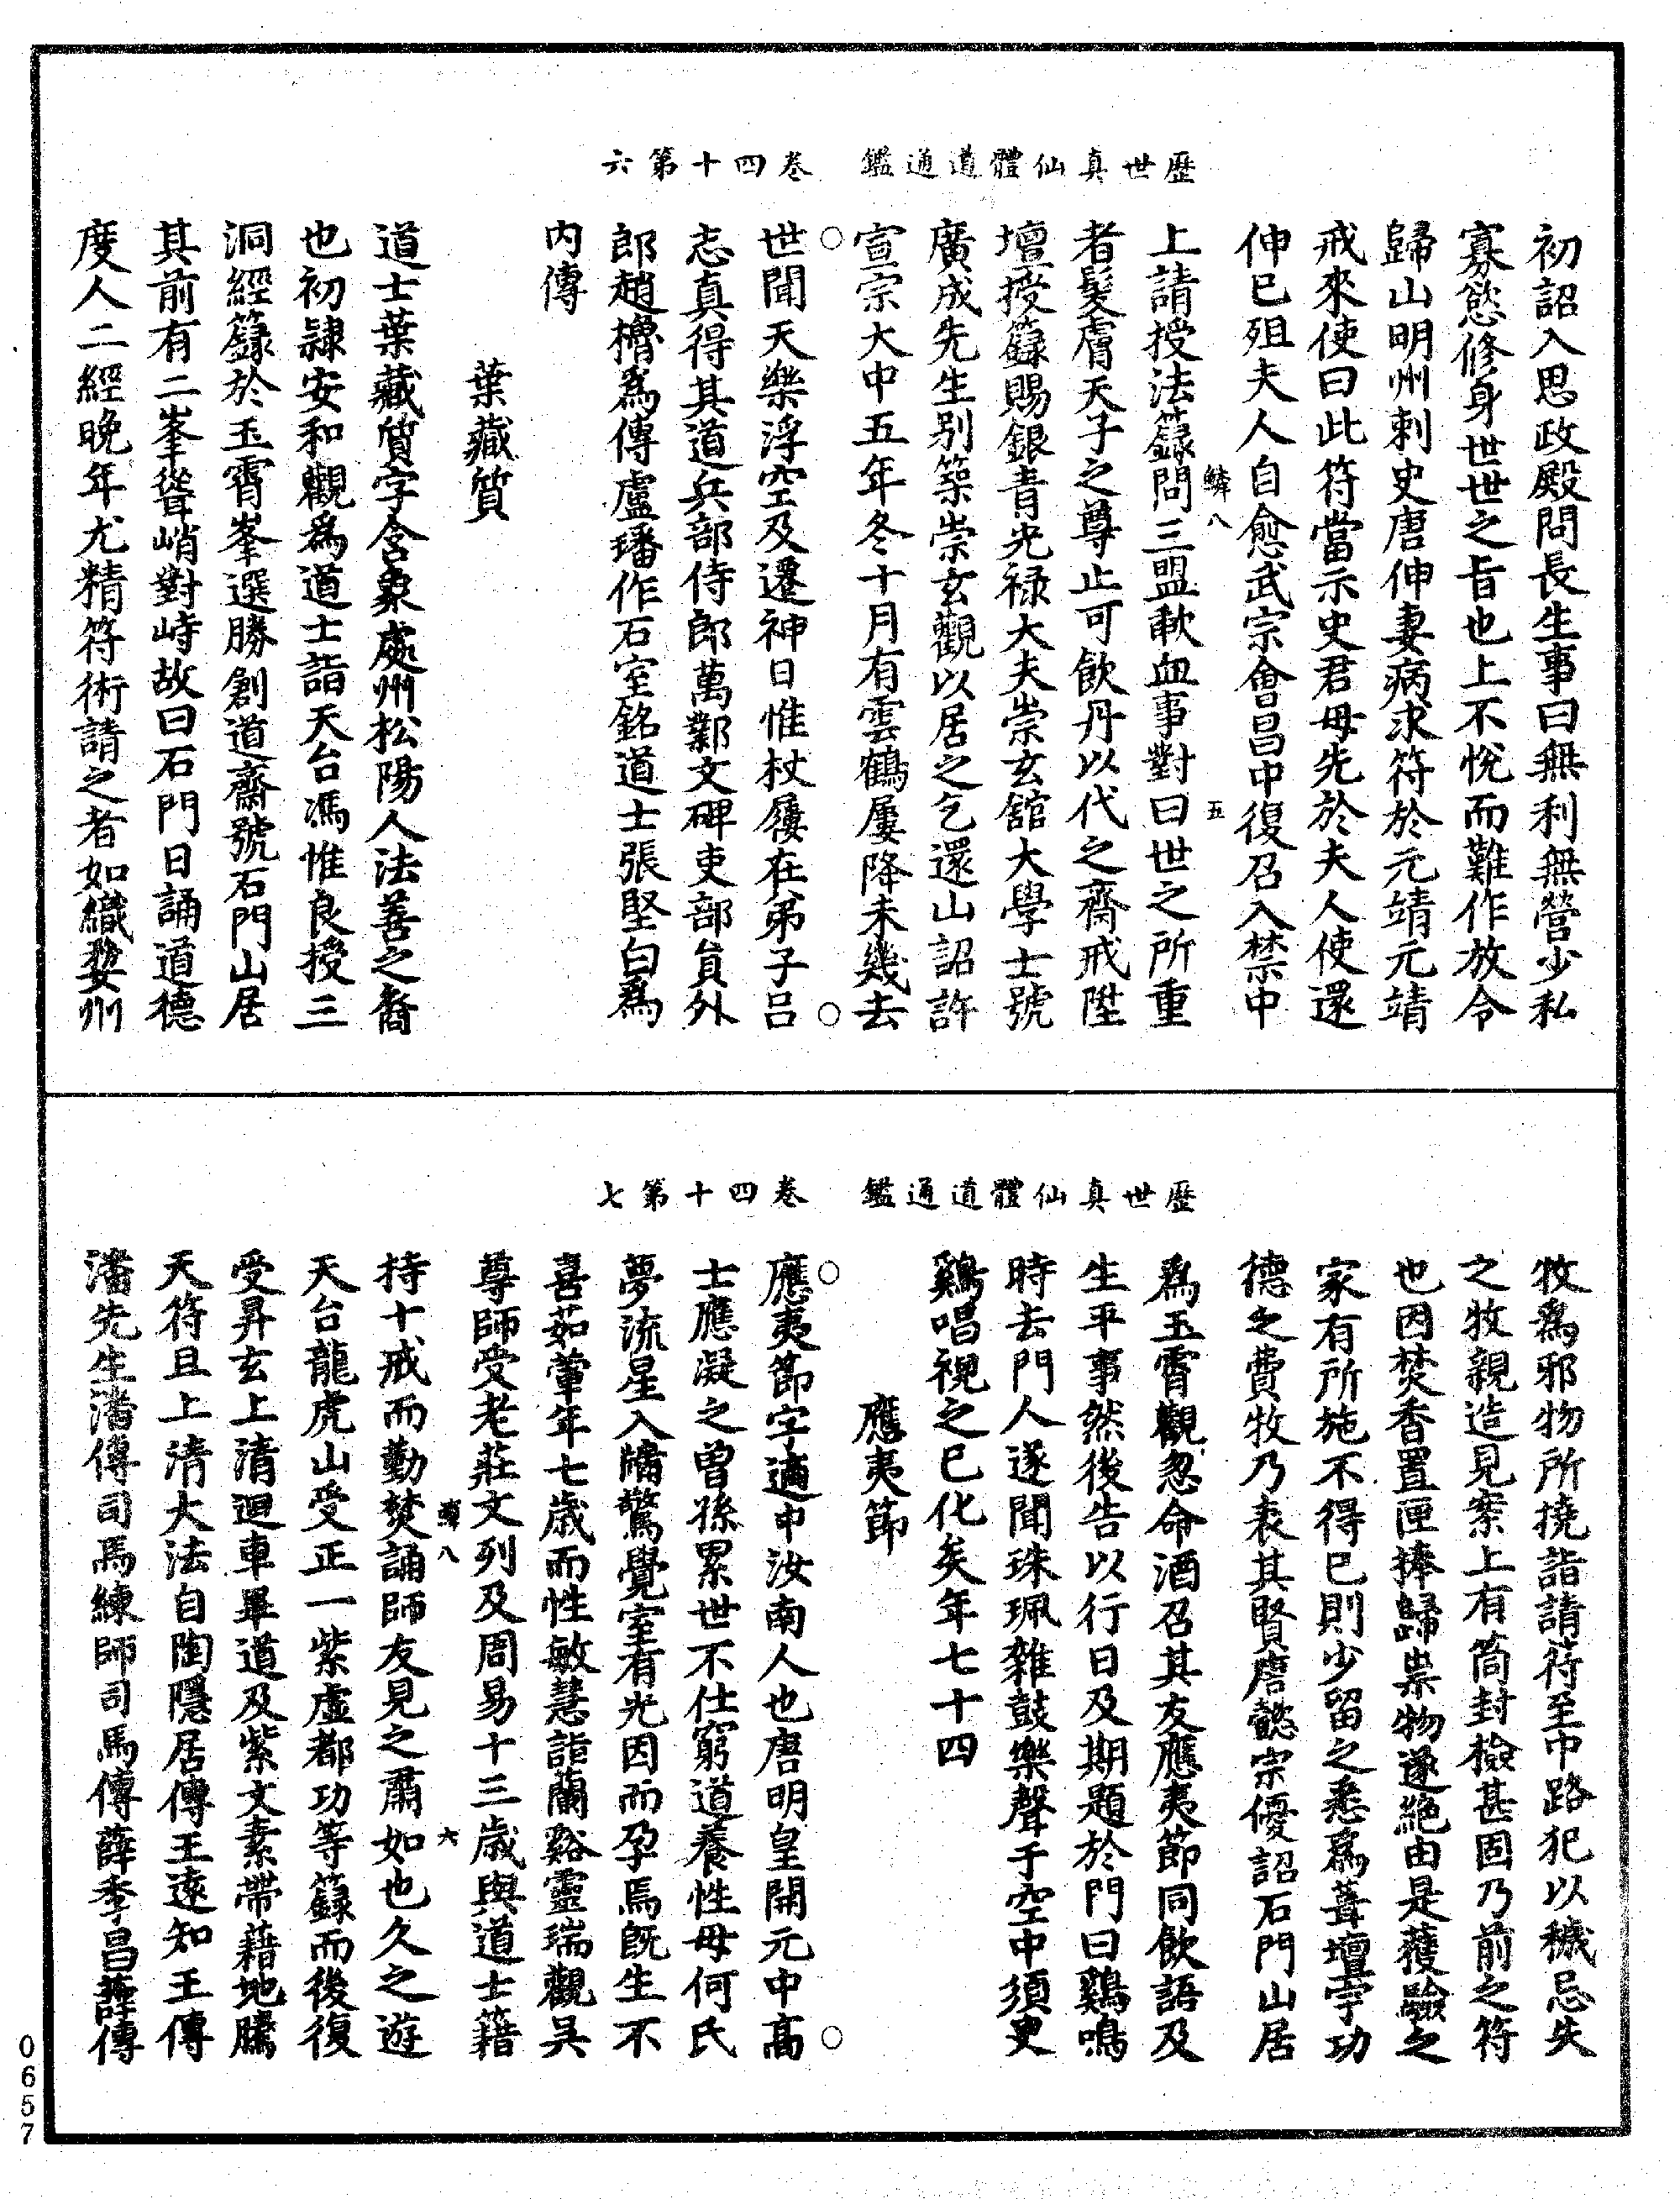 歷世真仙體道通鑑　卷四十第六
初詔入思政殿問長生事曰無利無營少私
寡慾修身世世之旨也上不悅而難作放令
歸山明州刺史唐伸妻病求符於元靖元靖
戒來使曰此符當示史君母先於夫人使還
伸已殂夫人自愈武宗會昌中復召入禁中
鱗八　五
上請授法籙問三盟歃血事對曰世之所重
者髮膚天子之尊止可飲丹以代之齋戒陞
壇授籙賜銀青光祿大夫崇玄館大學士號
廣成先生別築崇玄觀以居之乞還山詔許
宣宗大中五年冬十月有雲鶴屢降未幾去
世聞天樂浮空及遷神日惟杖屨在弟子呂
志真得其道兵部侍郎蕭鄴文碑吏部員外
郎趙櫓為傳盧璠作石室銘道士張堅白為
內傳
葉藏質
道士葉藏質字含象處州松陽人法善之裔
也初隸安和觀為道士詣天台馮惟良授三
洞經籙於玉霄峯選勝創道齋號石門山居
其前有二峯聳峭對峙故曰石門日誦道德
度人二經晚年尤精符術請之者如織婺州
歷世真仙體道通鑑　卷四十第七
牧為邪物所撓詣請符至中路犯以穢忌失
之牧親造見案上有筒封檢甚固乃前之符
也因焚香置匣捧歸祟物遂絕由是獲驗之
家有所施不得已則少留之悉為葺壇宇功
德之費牧乃表其賢唐懿宗優詔石門山居
為玉霄觀忽命酒召其友應夷節同飲語及
生平事然後告以行日及期題於門曰鷄鳴
時去門人遂聞珠珮雜鼓樂聲于空中須臾
鷄唱視之已化矣年七十四
應夷節
應夷節字適中汝南人也唐明皇開元中高
士應凝之曾孫累世不仕窮道養性母何氏
夢流星入牖驚覺室有光因而孕焉既生不
喜茹葷年七歲而性敏慧詣蘭谿靈瑞觀吳
尊師受老莊文列及周易十三歲與道士籍
鱗八　六
持十戒而勤焚誦師友見之肅如也久之遊
天台龍虎山受正一紫虛都功等籙而後復
受昇玄上清迴車畢道及紫文素帶藉地騰
天符且上清大法自陶隱居傳王遠知王傳
潘先生潘傳司馬練師司馬傳薛季昌薛傳
0657